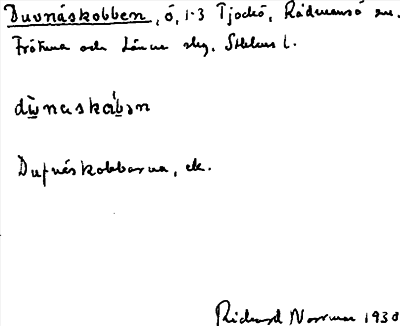 Duvnäskobben, ö, 1-3 Tjockö, Rådmansö sn.
Frötuna och Länna skg, Sthlms l.
dùwnaskább̬an
Dufnäskobbarna, ek.
Richard Norrman 1930